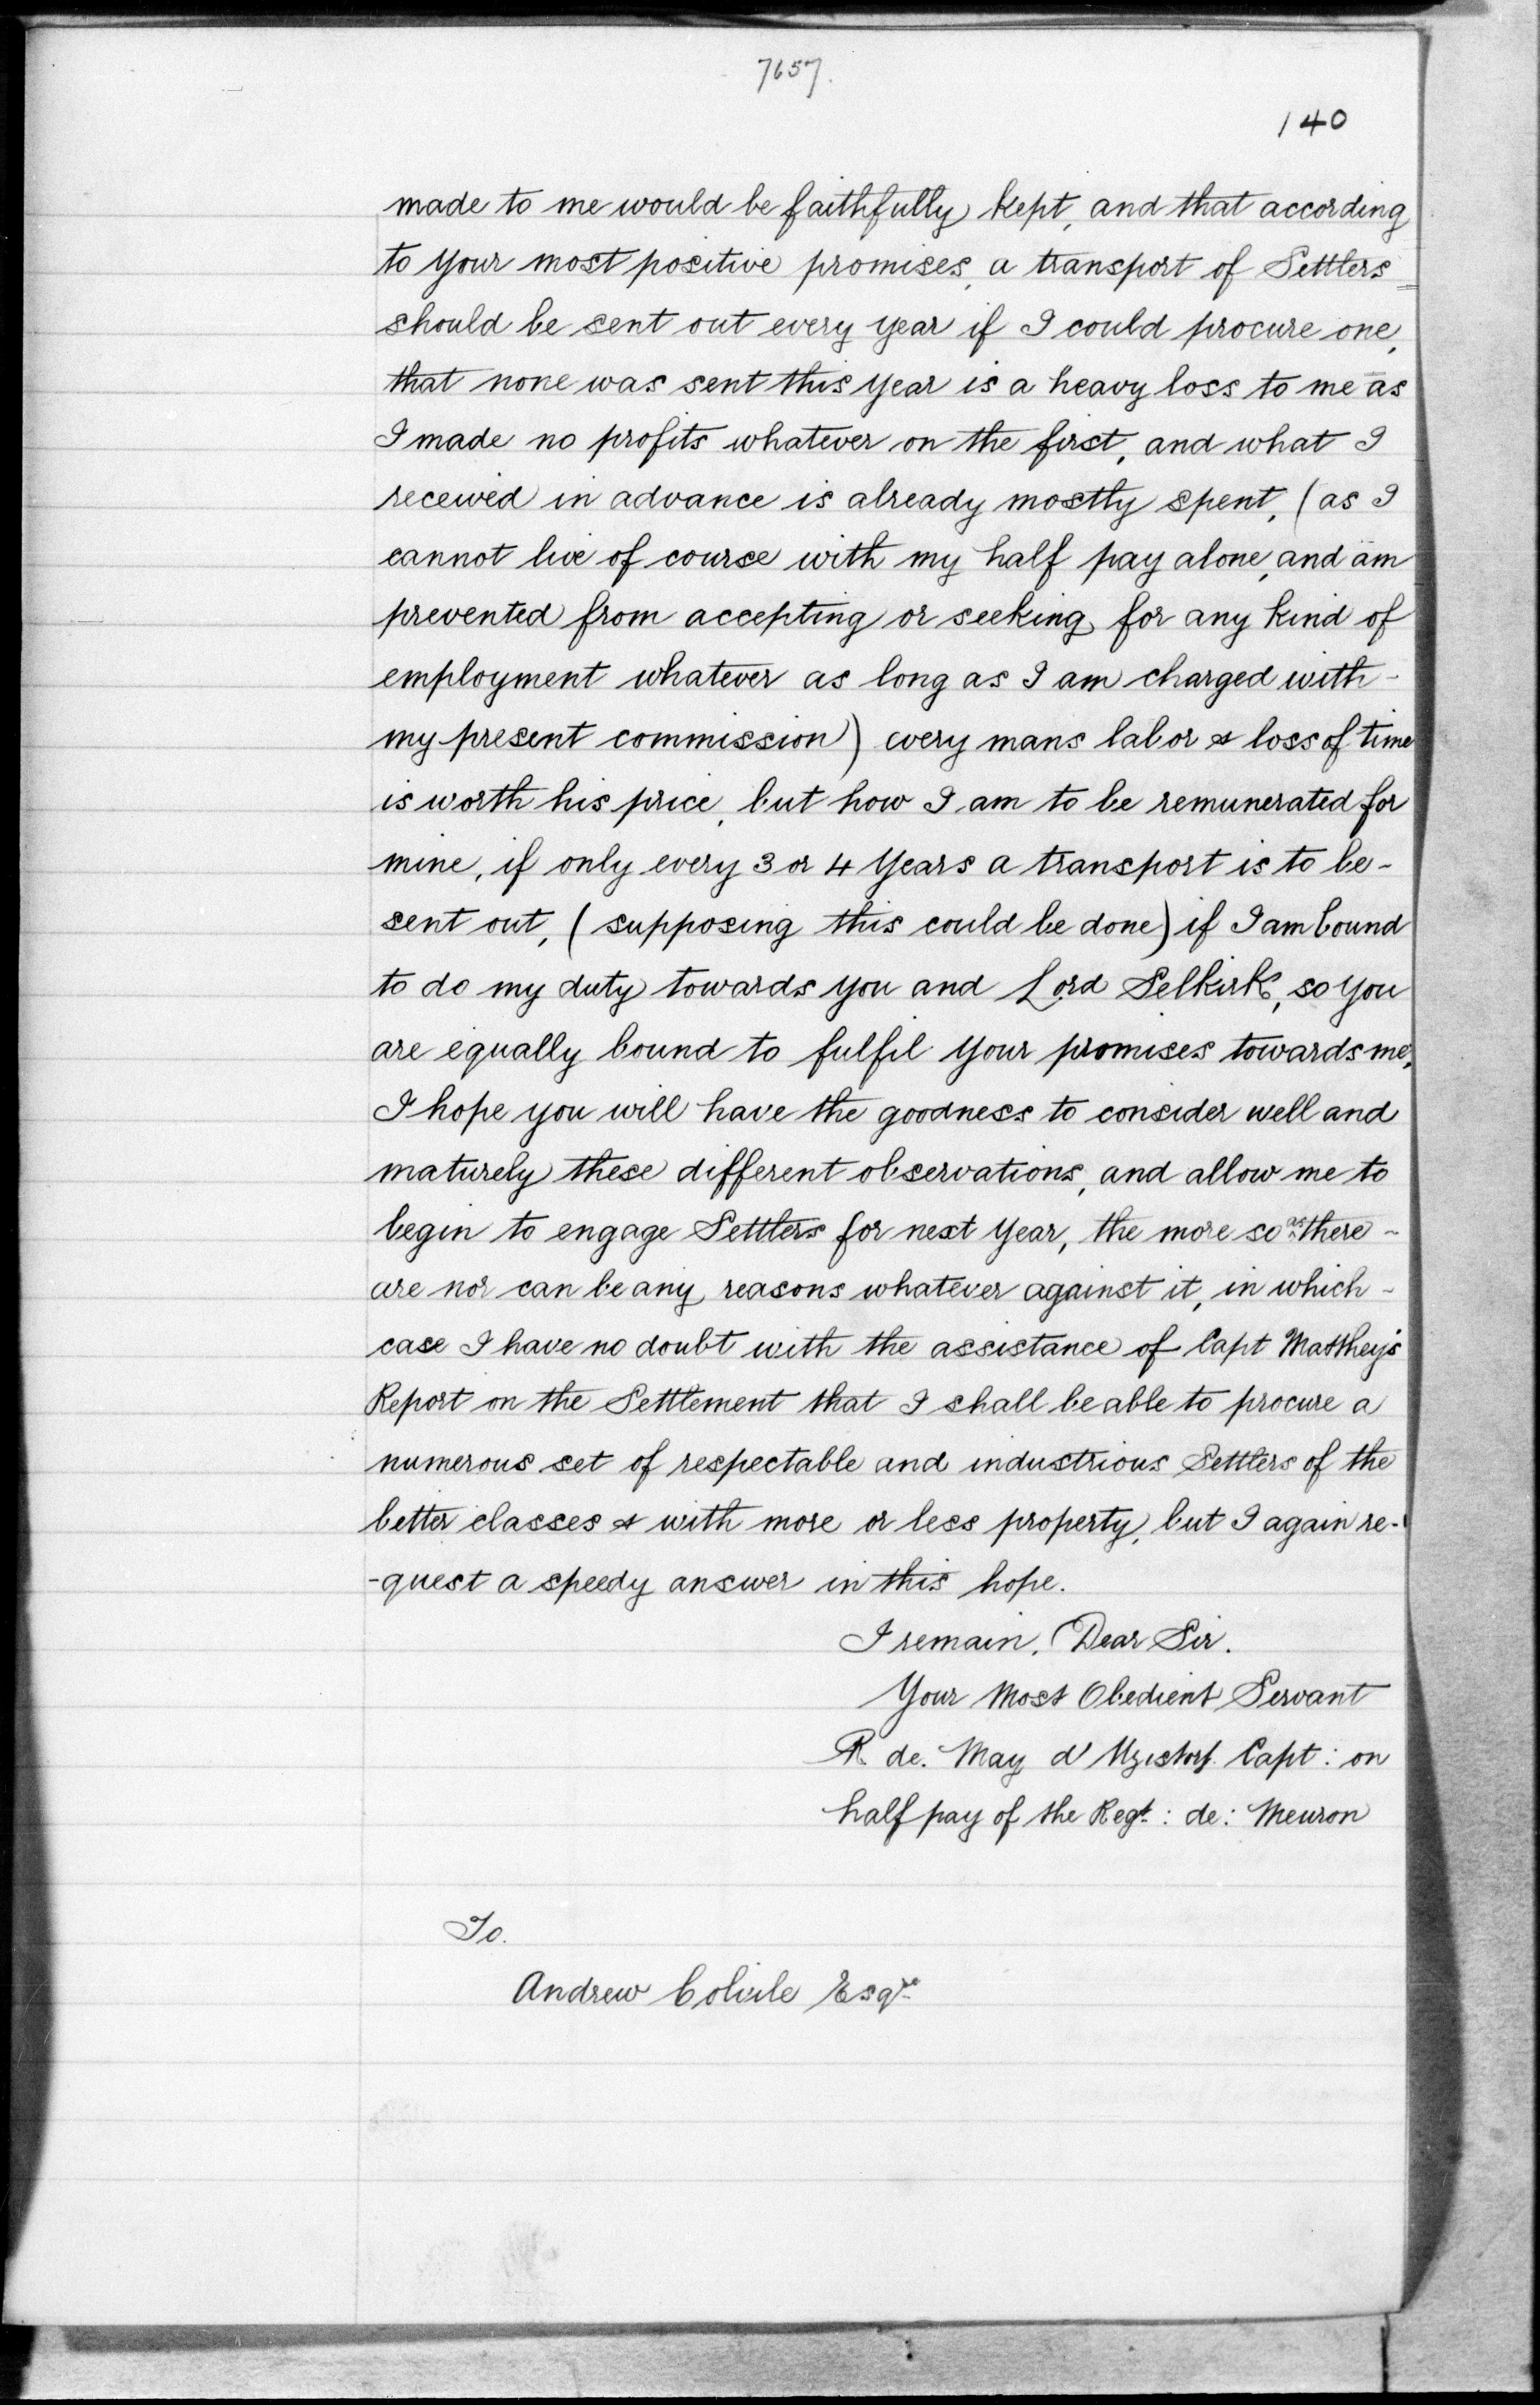 7657.
140
made to me would be faithfully kept, and that according
to your most positive promises, a transport of Settlers
should be sent out every year if I could procure one,
that none was sent this year is a heavy loss to me as
I made no profits whatever on the first, and what I
received in advance is already mostly spent, (as I
cannot live of course with my half pay alone, and am
prevented from accepting or seeking for any kind of
employment whatever as long as I am charged with-
my present commission) every mans labor & loss of time
is worth his price, but how I am to be remunerated for
mine, if only every 3 or 4 Years a transport is to be-
sent out, (supposing this could be done) if I am bound
to do my duty towards you and Lord Selkirk, so you
are equally bound to fulfil your promises towards me,
I hope you will have the goodness to consider well and
maturely these different observations, and allow me to
begin to engage Settlers for next Year, the more so as there-
are nor can be any reasons whatever against it, in which-
case I have no doubt with the assistance of Capt Matthey's
Report on the Settlement that I shall be able to procure a
numerous set of respectable and industrious Settlers of the
better classes & with more or less property, but I again re-
-quest a speedy answer in this hope.
I remain. Dear Sir.
Your Most Obedient Servant
R. de. May d'Uzistorf. Capt: on
half pay of the Regt: de: Meuron
To.
Andrew Colvile Esqre